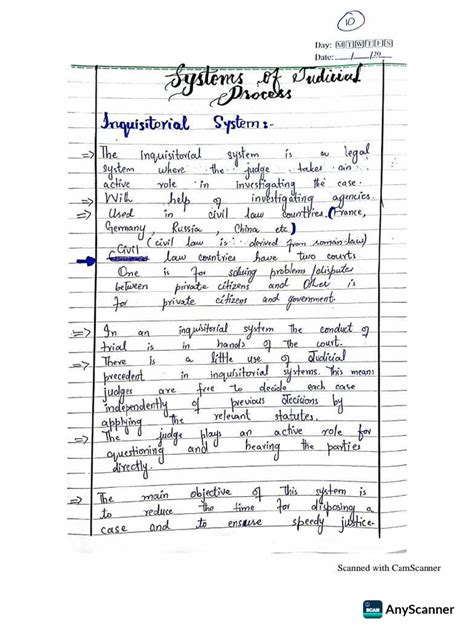 10
Day: M T W T F S
Date: __/__/20__
Systems of Judicial
Process
Inquisitorial System:-
=> The inquisitorial system is a legal
system where the judge takes an
active role in investigating the case.
=> With help of investigating agencies.
=> Used in civil law countries. (France,
Germany, Russia, China etc)
(civil law is derived from roman law)
Civil law countries have two courts
One is for solving problems/disputes
between private citizens and Other is
for private citizens and government.
=> In an inquisitorial system the conduct of
trial is in hands of the court.
=> There is a little use of Judicial
precedent in inquisitorial systems. This means
judges are free to decide each case
independently of previous decisions by
applying the relevant statutes.
=> The judge plays an active role for
questioning and hearing the parties
directly.
=> The main objective of this system is
to reduce the time for disposing a
case and to ensure speedy justice.
Scanned with CamScanner
SCAN AnyScanner